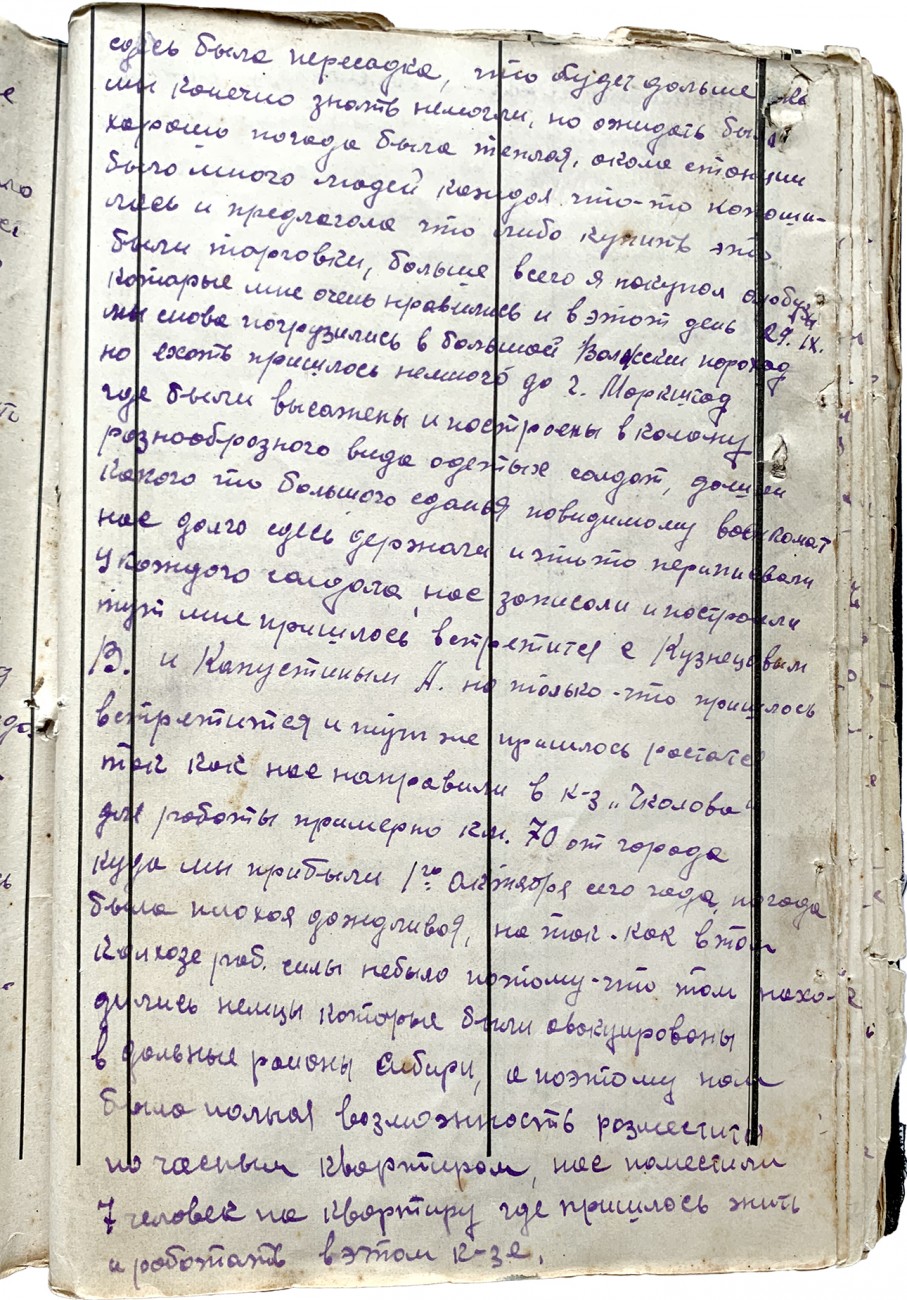 сдесь была пересадка, что будет дальше
мы конечно знать немогли, но ожидать было
хорошо погода была теплая, около станции
было много людей каждая что-то копоши-
лась и предлагала что либо купить это
были торговки, больше всего я покупал арбузы
которые мне очень нравились и в этот день 29.IX.
мы снова погрузились в большой Волжский пароход
но ехать пришлось немного до г. Маркштад
где были высажены и построены в колону
разнообразного вида одетых солдат, дошли
какого то большого сданья повидимому военкомат
нас долго сдесь держали и что то переписывали
у каждого солдата, нас записали и построили
тут мне пришлось встретится с Кузнецовым
В. и Капустиным А. но только-что пришлось
встретится и тут же пришлось растатся
так как нас направили в к-з „Чкалова"
для работы примерно км. 70 от города
куда мы прибыли 1го октября сего года, погода
была плохая дождливая, но так-как в том
колхозе раб. силы небыло потому-что там нахо-
дились немцы которые были эвакуированы
в дальные районы Сибири, а поэтому нам
была полная возможность разместится
по часным квартирам, нас поместили
7 человек на квартиру где пришлось жить
и работать в этом к-зе.